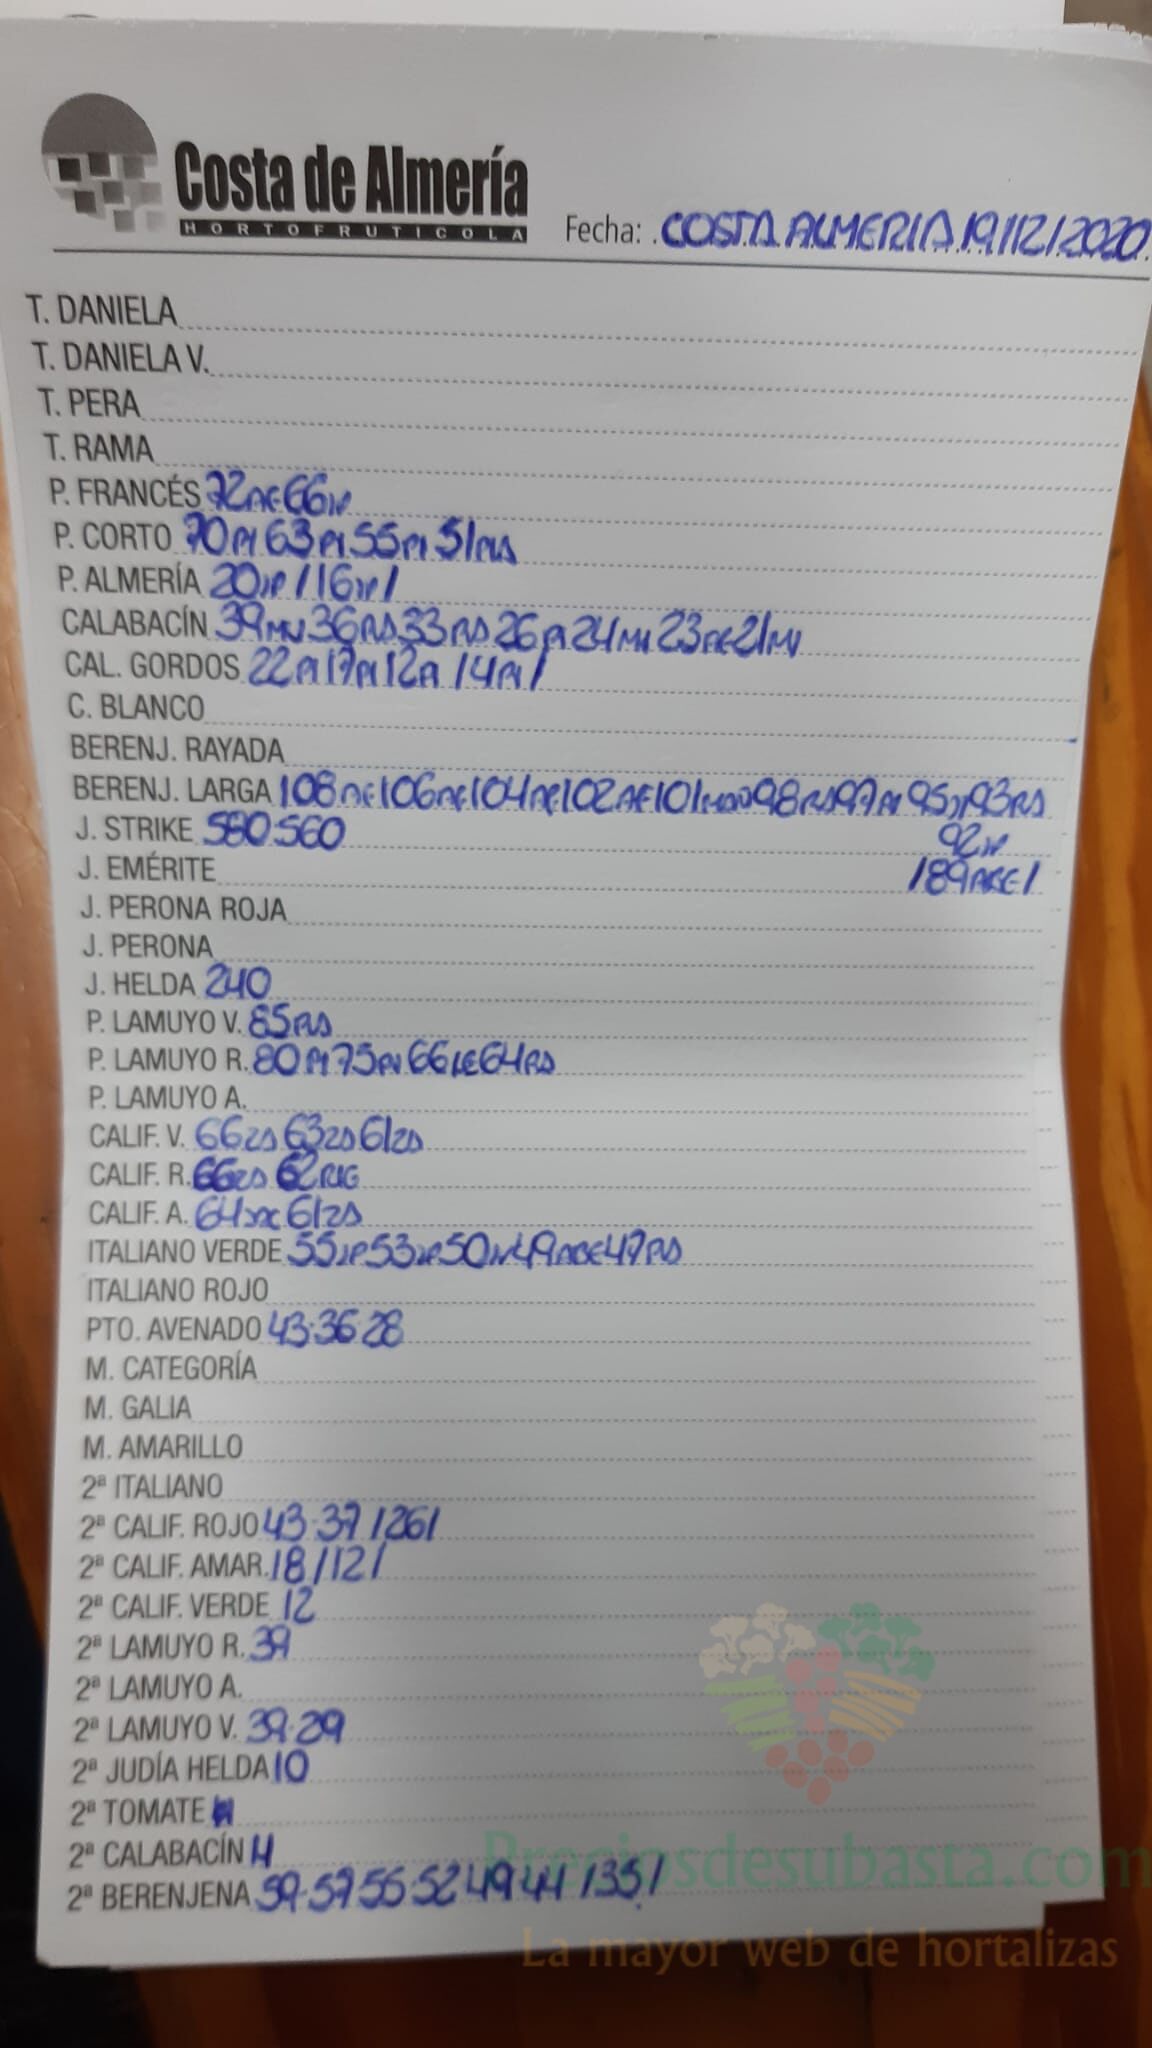 Costa de Almería
HORTOFRUTICOLA
Fecha: COSTA ALMERIA 19/12/2020
T. DANIELA
T. DANIELA V.
T. PERA
T. RAMA
P. FRANCÉS 72 AE 66
P. CORTO 70 PI 63 PI 55 PI 51 RS
P. ALMERÍA 20 /16 /
CALABACÍN 39 MN 36 RS 33 RS 26 PI 24 MN 23 AE 21 MN
CAL. GORDOS 22 PI 17 PI 12 PI /14 PI/
C. BLANCO
BERENJ. RAYADA
BERENJ. LARGA 108 AE 106 AE 104 AE 102 AE 101 98 RS 97 PI 95 93 RS
J. STRIKE 580.560 92
J. EMÉRITE /89 ABE/
J. PERONA ROJA
J. PERONA
J. HELDA 240
P. LAMUYO V. 85 RS
P. LAMUYO R. 80 PI 75 66 LE 64 RS
P. LAMUYO A.
CALIF. V. 66 ZD 63 ZD 61 ZD
CALIF. R. 66 ZD 62
CALIF. A. 64 61 ZD
ITALIANO VERDE 55 53 50 49 ABE 47 RS
ITALIANO ROJO
PTO. AVENADO 43·36·28
M. CATEGORÍA
M. GALIA
M. AMARILLO
2ª ITALIANO
2ª CALIF. ROJO 43·37 /26/
2ª CALIF. AMAR. 18 /12/
2ª CALIF. VERDE 12
2ª LAMUYO R. 39
2ª LAMUYO A.
2ª LAMUYO V. 39·29
2ª JUDÍA HELDA 10
2ª TOMATE
2ª CALABACÍN
2ª BERENJENA 59·57 55·52 49 44 /35/
Preciosdesubasta.com
La mayor web de hortalizas